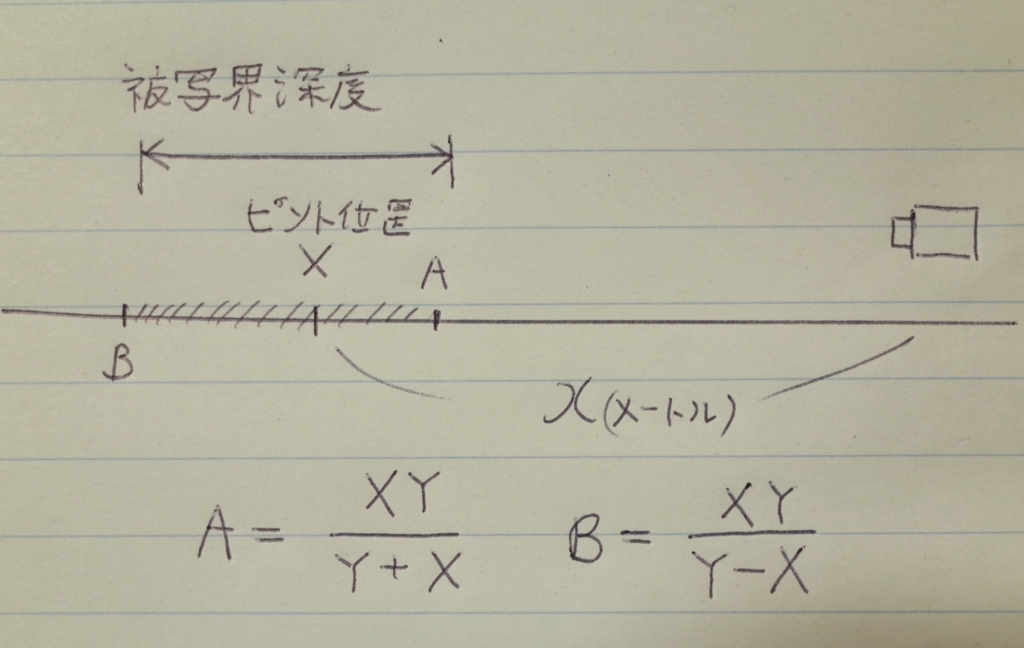 被写界深度
ピント位置
X
A
B
x(メートル)
A = XY / (Y + X)
B = XY / (Y - X)